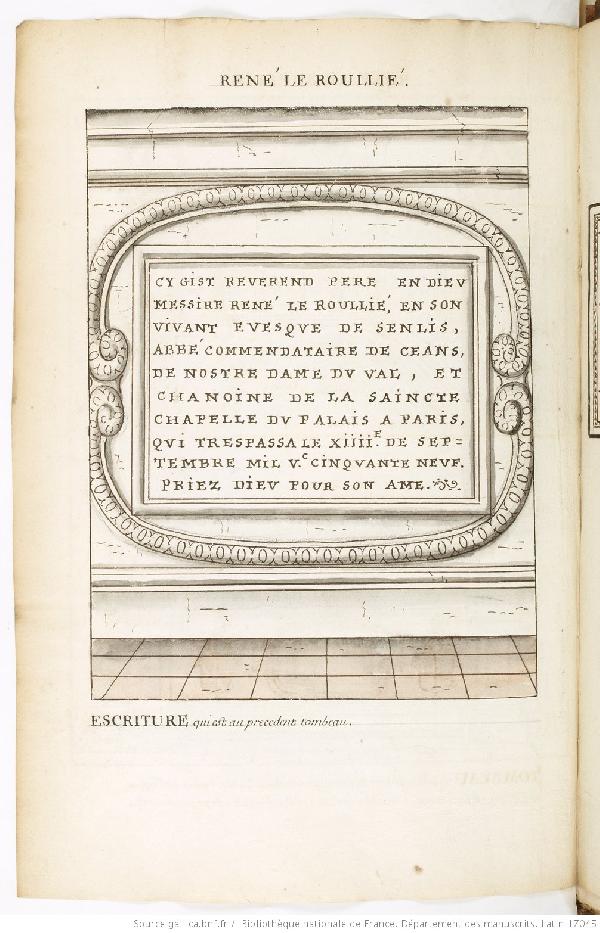 RENÉ LE ROULLIÉ.
CY GIST REVEREND PERE EN DIEV
MESSIRE RENÉ LE ROULLIÉ, EN SON
VIVANT EVESQVE DE SENLIS,
ABBÉ COMMENDATAIRE DE CEANS,
DE NOSTRE DAME DV VAL, ET
CHANOINE DE LA SAINCTE
CHAPELLE DV PALAIS A PARIS,
QVI TRESPASSA LE XIIIIᴱ. DE SEP=
TEMBRE MIL V.ᶜ CINQVANTE NEVF.
PRIEZ DIEV POUR SON AME.
ESCRITURE, qui est au precedent tombeau.
Source gallica.bnf.fr / Bibliothèque nationale de France. Département des manuscrits. Latin 17045